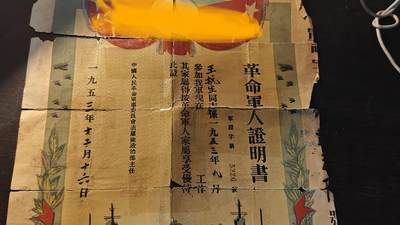 革命軍人證明書
字第 號
王 生同志係一九五三年九月
參加我軍現在 工作
其家屬得按革命軍人家屬享受優待
此證
中國人民革命軍事委員會 政治部主任
一九五三年十二月十六日